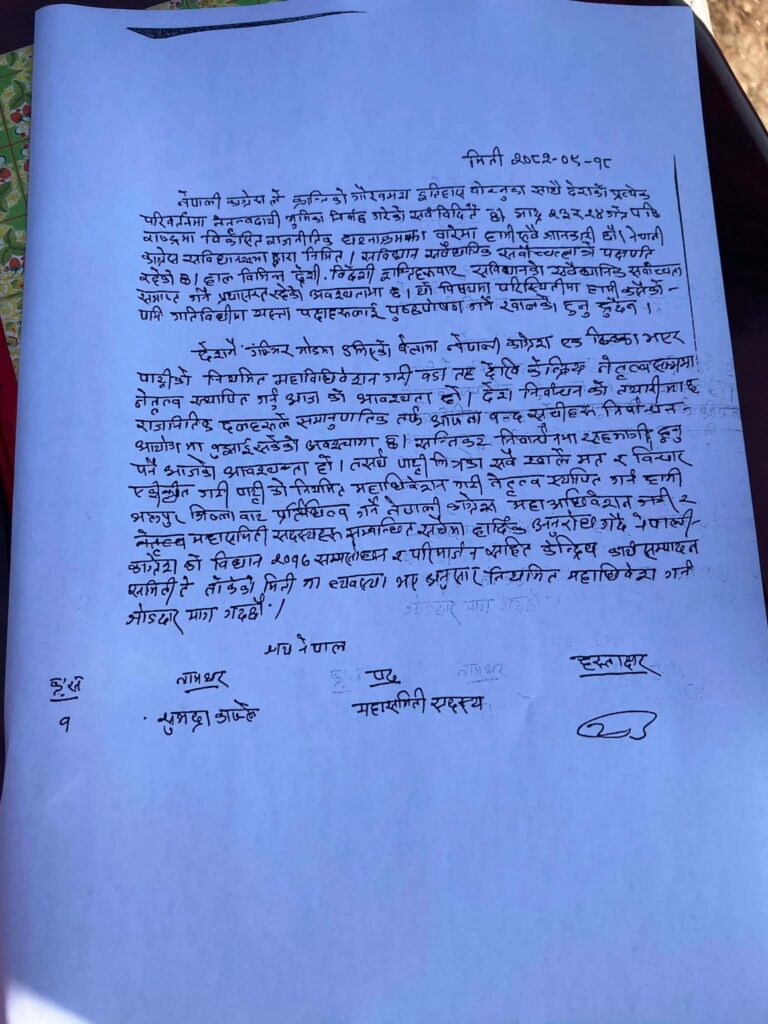 मिती २०८२-०९-१८
नेपाली कांग्रेस ले क्रान्तिको गौरवमय इतिहास बोक्नुका साथै देशको प्रत्येक
परिवर्तनमा नेतृत्वदायी भुमिका निर्वाह गरेको सर्व विदितै छ। भाद्र २३ र २४ गते पछि
राष्ट्रमा विकसित राजनीतिक घटनाक्रमका बारेमा हामी सबै जानकारी छौं। नेपाली
कांग्रेस संविधानसभा द्वारा निर्मित। संविधान सर्वोच्चताको पक्षपाति
रहेको छ। हाल विभिन्न देशी, विदेशी संविधानको सर्वोच्चता
समाप्त गर्ने प्रयासरत रहेको अवस्थामा छ। यो विषयमा परिस्थितीमा हामी कसैको-
पनि गतिविधीमा यस्ता पक्षहरुलाई पुष्ठपोषण गर्ने खालको हुनु हुदैन।
देशनै गम्भिर मोडमा उभिएको बेलामा नेपाली कांग्रेस एक ढिक्का भएर
पार्टीको नियमित महाधिवेशन गरी वडा तह देखि केन्द्रिय नेतृत्व सम्ममा
नेतृत्व स्थापित गर्नु आजको आवश्यकता हो। देश निर्वाचन को तयारीमा छ
राजनितिक दलहरुले समानुपातिक तर्फ आफ्नो बन्द सूचीहरु निर्वाचन
आयोग मा बुझाई सकेको अवस्थामा छ। निर्वाचनमा सहभागी हुनु
पर्ने आजको आवश्यकता हो। तसर्थ पार्टी भित्रका सबै खाले मत र विचार
एकीकृत गरी पार्टी को नियमित महाधिवेशन गरी नेतृत्व स्थापित गर्न हामी
भक्तपुर जिल्ला बाट प्रतिनिधित्व गर्ने नेपाली कांग्रेस महाअधिवेशन
महासमिती सदस्यहरु सम्बन्धित सबैमा हार्दिक अनुरोध गर्दै नेपाली-
कांग्रेस को विधान २०१७ र परिमार्जन सहित केन्द्रिय कार्य सम्पादन
समिती ले तोकेको मिती मा व्यवस्था भए अनुसार नियमित महाधिवेशन गर्न
जोडदार माग गर्दछौं।
जय नेपाल
क्र.सं नामथर पद हस्ताक्षर
१ सुभद्रा महासमिती सदस्य